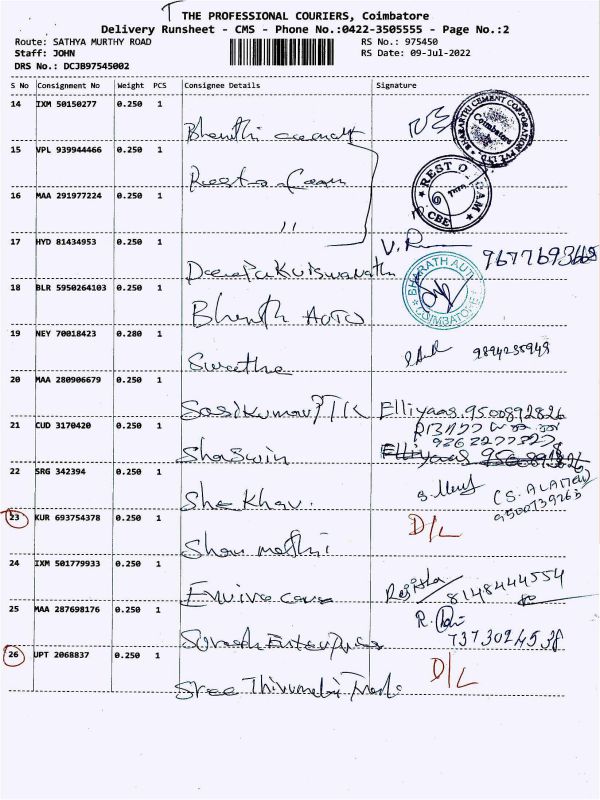 THE PROFESSIONAL COURIERS, Coimbatore
Delivery Runsheet - CMS - Phone No.:0422-3505555 - Page No.:2
Route: SATHYA MURTHY ROAD RS No.: 975450
Staff: JOHN RS Date: 09-Jul-2022
DRS No.: DCJB97545002
S No Consignment No Weight PCS Consignee Details Signature
14 IXM 50150277 0.250 1
Bharathi
BHARATHI CEMENT CORPORATION PVT LTD
Coimbatore
15 VPL 939944466 0.250 1
REST O
CBE
16 MAA 291977224 0.250 1
"
17 HYD 81434953 0.250 1
V.R
Deepa K Viswanath
18 BLR 5950264103 0.250 1
Bharath Auto
BHARATH AUTO
COIMBATORE
19 NEY 70018423 0.280 1
Swetha 9894235948
20 MAA 280906679 0.250 1
Sasikumar TK Elliyaas. 9500892826
21 CUD 3170420 0.250 1
Shaswin
22 SRG 342394 0.250 1
Shekhar.
23 KUR 693754378 0.250 1 D/L
Shanmathi
24 IXM 501779933 0.250 1
8148444554
25 MAA 287698176 0.250 1
Suresh Enterprises 7373024538
26 UPT 2068837 0.250 1 D/L
Sree Thirumalai Trade